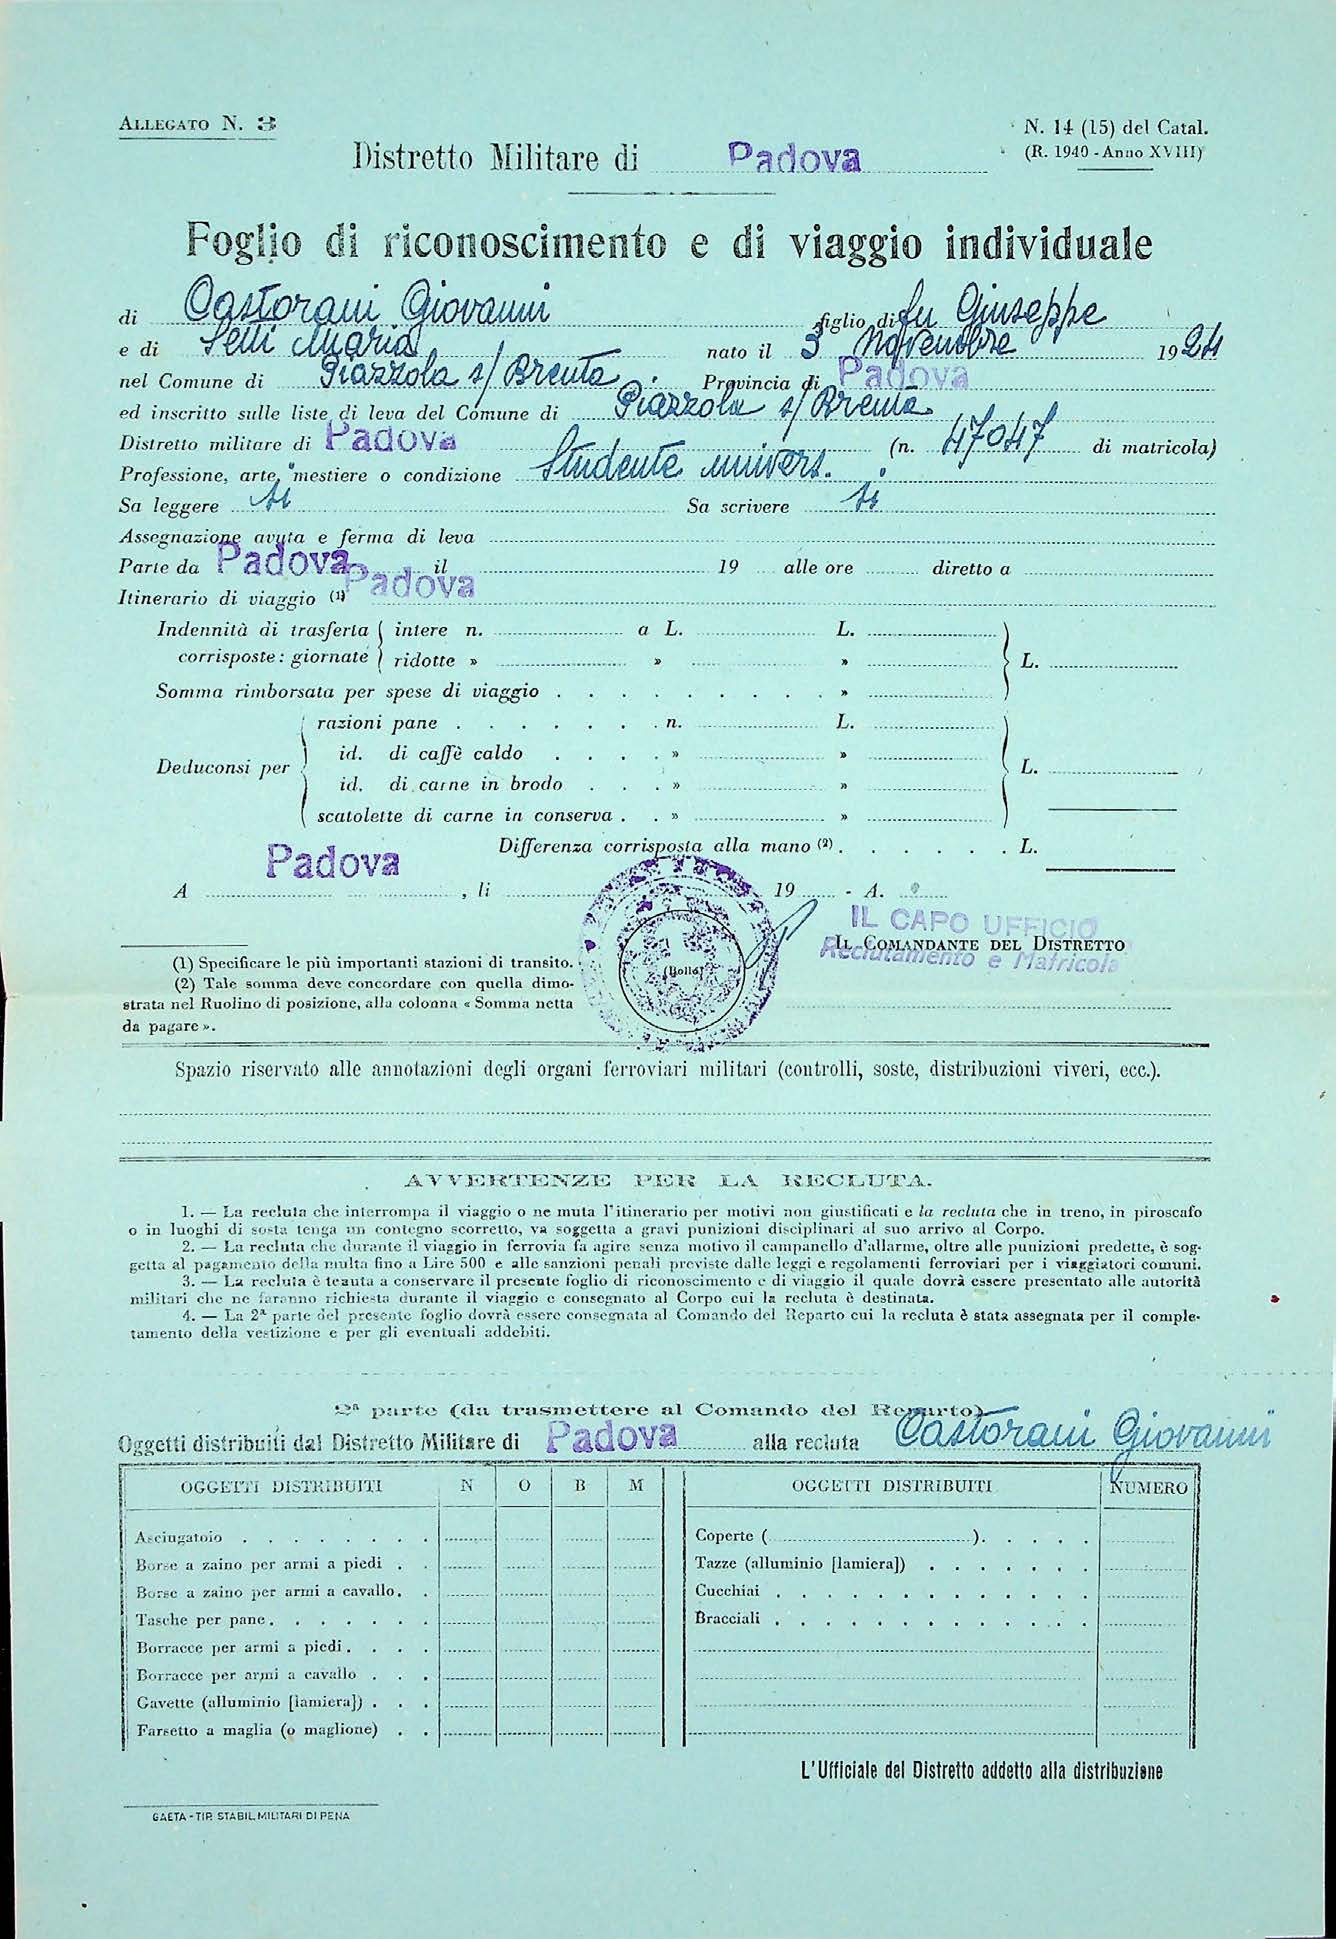 ALLEGATO N. 3
N. 14 (15) del Catal.
(R. 1940 - Anno XVIII)
Distretto Militare di Padova
Foglio di riconoscimento e di viaggio individuale
di Castorani Giovanni figlio di fu Giuseppe
e di Setti Maria nato il 3 Novembre 1924
nel Comune di Piazzola s/ Brenta. Provincia di Padova
ed inscritto sulle liste di leva del Comune di Piazzola s/ Brenta
Distretto militare di Padova (n. 47047 di matricola)
Professione, arte, mestiere o condizione Studente univers.
Sa leggere si Sa scrivere si
Assegnazione avuta e ferma di leva
Parte da Padova il 19 alle ore diretto a
Itinerario di viaggio (1) Padova
Indennità di trasferta intere n. a L. L.
corrisposte: giornate ridotte » » » L.
Somma rimborsata per spese di viaggio . . . . . . . . . »
razioni pane . . . . . . . n. L.
id. di caffè caldo . . . . » »
Deduconsi per L.
id. di carne in brodo . . . » »
scatolette di carne in conserva . . » »
Differenza corrisposta alla mano (2) . . . . . . L.
Padova
A , li 19 - A.
IL CAPO UFFICIO
IL COMANDANTE DEL DISTRETTO
Reclutamento e Matricola
(Bollo)
(1) Specificare le più importanti stazioni di transito.
(2) Tale somma deve concordare con quella dimo-
strata nel Ruolino di posizione, alla colonna « Somma netta
da pagare ».
Spazio riservato alle annotazioni degli organi ferroviari militari (controlli, soste, distribuzioni viveri, ecc.).
AVVERTENZE PER LA RECLUTA.
1. — La recluta che interrompa il viaggio o ne muta l'itinerario per motivi non giustificati e la recluta che in treno, in piroscafo
o in luoghi di sosta tenga un contegno scorretto, va soggetta a gravi punizioni disciplinari al suo arrivo al Corpo.
2. — La recluta che durante il viaggio in ferrovia fa agire senza motivo il campanello d'allarme, oltre alle punizioni predette, è sog-
getta al pagamento della multa fino a Lire 500 e alle sanzioni penali previste dalle leggi e regolamenti ferroviari per i viaggiatori comuni.
3. — La recluta è tenuta a conservare il presente foglio di riconoscimento e di viaggio il quale dovrà essere presentato alle autorità
militari che ne faranno richiesta durante il viaggio e consegnato al Corpo cui la recluta è destinata.
4. — La 2ª parte del presente foglio dovrà essere consegnata al Comando del Reparto cui la recluta è stata assegnata per il comple-
tamento della vestizione e per gli eventuali addebiti.
2ª parte (da trasmettere al Comando del Reparto)
Oggetti distribuiti dal Distretto Militare di Padova alla recluta Castorani Giovanni
OGGETTI DISTRIBUITI N O B M OGGETTI DISTRIBUITI NUMERO
Asciugatoio . . . . . . . . Coperte ( ). . . . .
Borse a zaino per armi a piedi . . Tazze (alluminio [lamiera]) . . . . . . .
Borse a zaino per armi a cavallo. . Cucchiai . . . . . . . . . . . .
Tasche per pane. . . . . . . Bracciali . . . . . . . . . . . .
Borracce per armi a piedi. . . .
Borracce per armi a cavallo . . .
Gavette (alluminio [lamiera]) . . .
Farsetto a maglia (o maglione) . .
L'Ufficiale del Distretto addetto alla distribuzione
GAETA - TIP. STABIL. MILITARI DI PENA